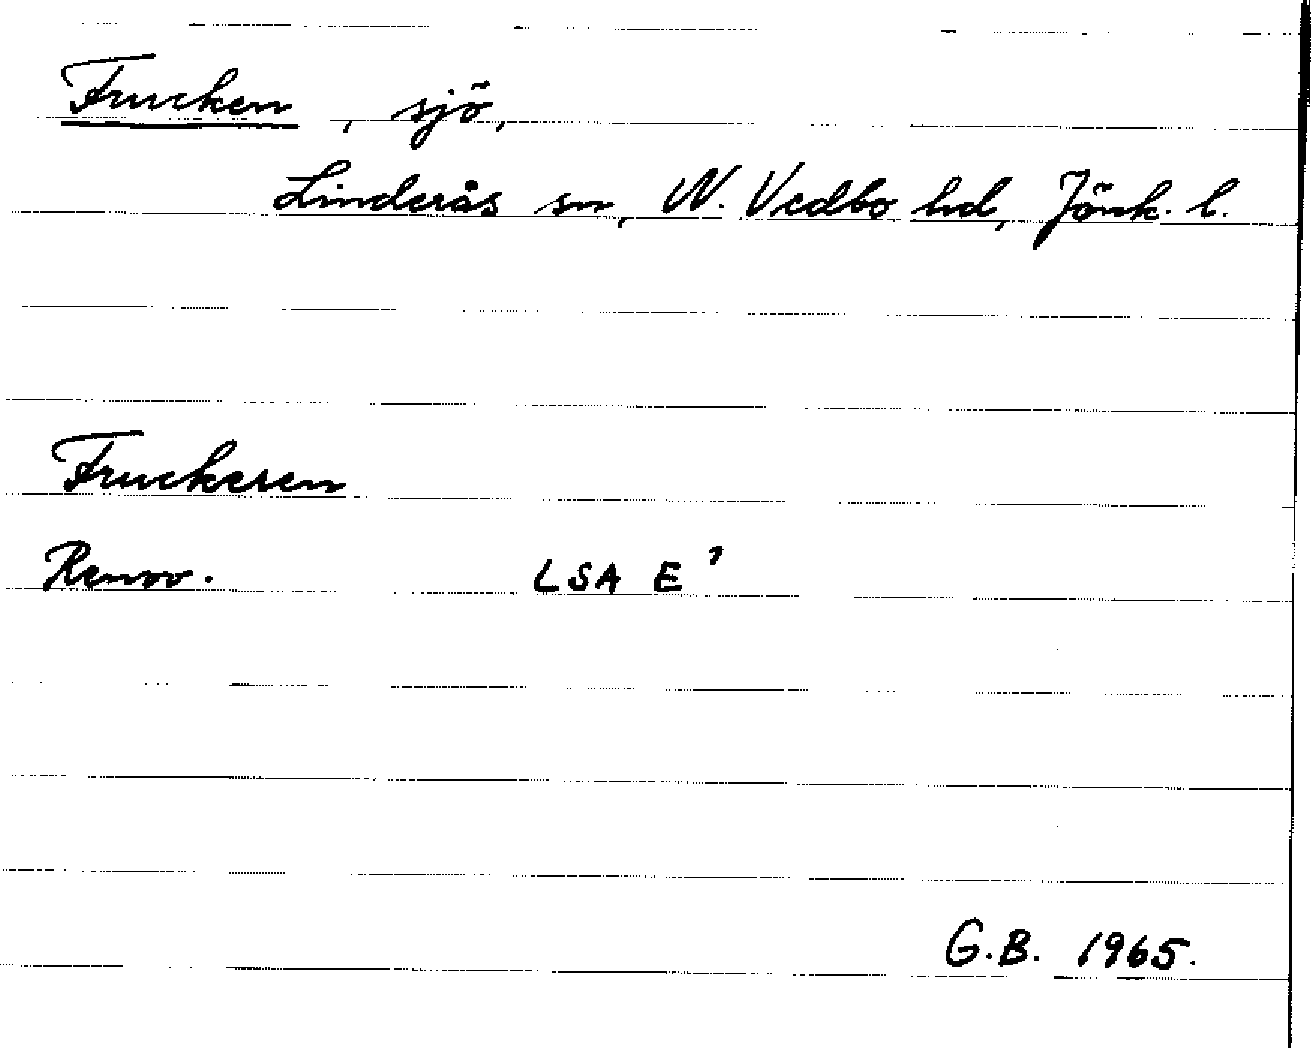 Frucken, sjö,
Linderås sn, N. Vedbo hd, Jönk. l.
Fruckeren
Renov. LSA E
G.B. 1965.